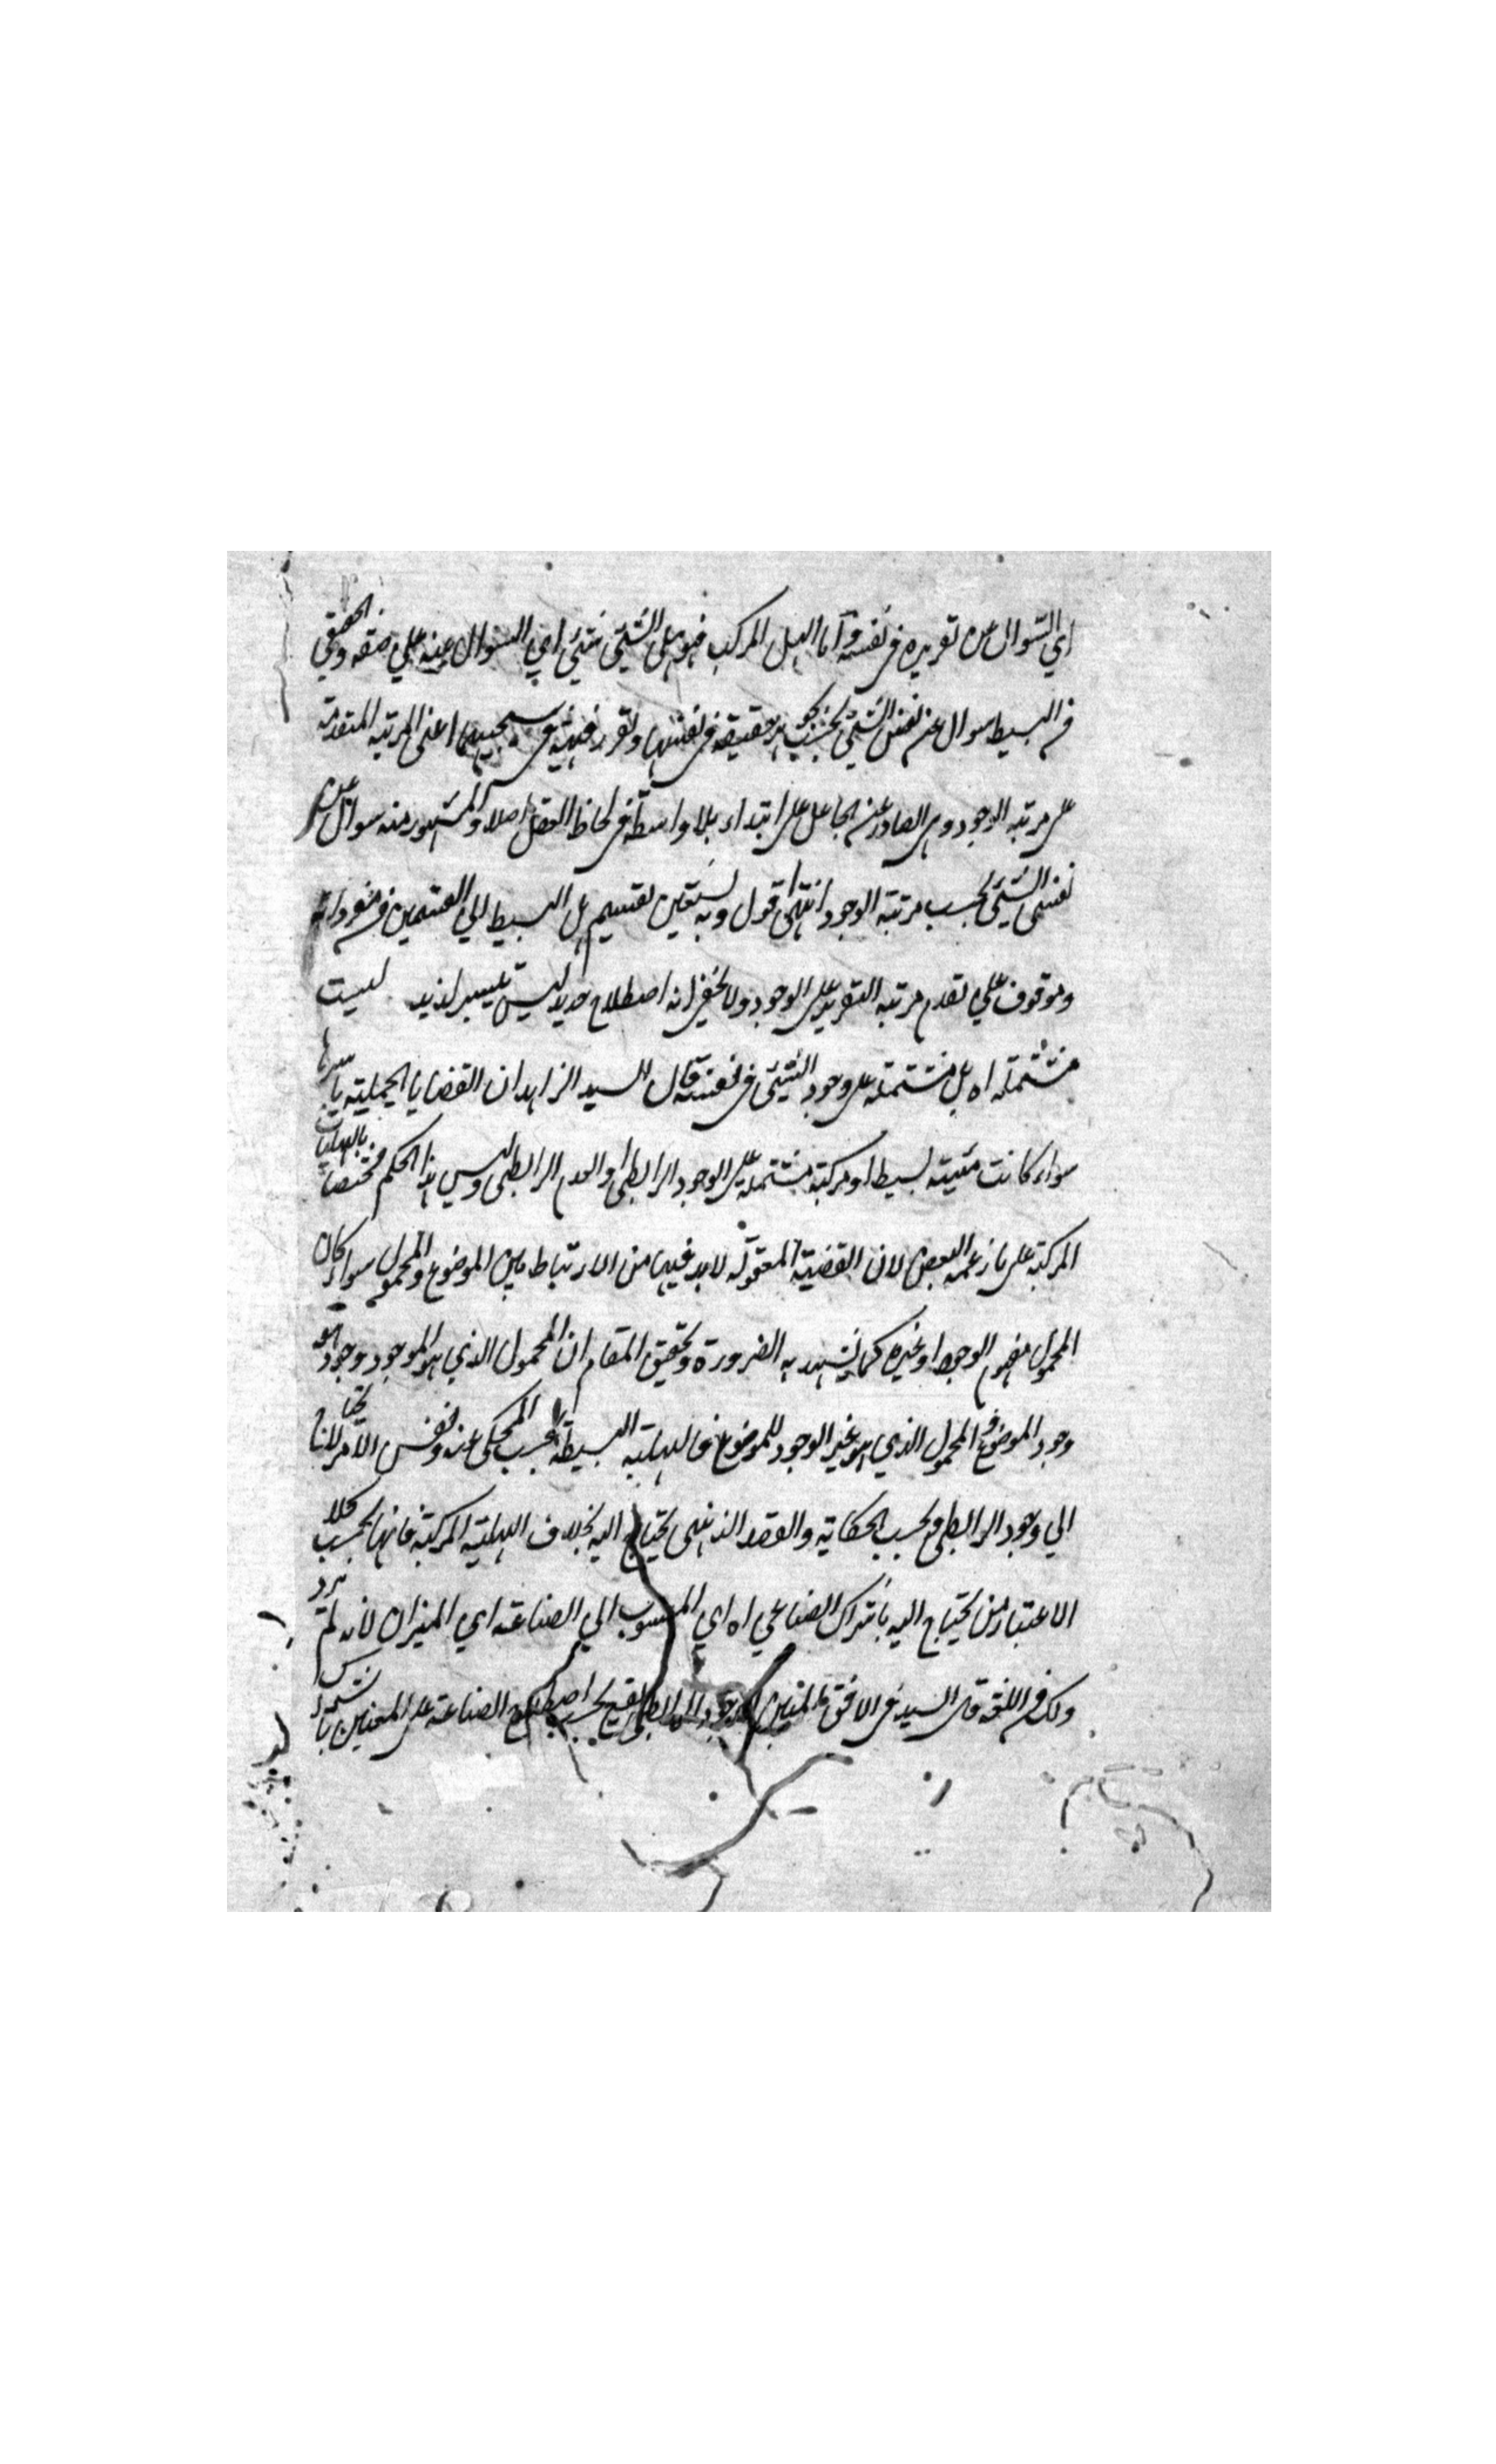 اي السؤال عن تقريره في نفسه واما الهل المركب فهو هل الشئ شئ اي السؤال عنه علي صفة والحقيقي
من البسيط سوال عن نفس الشئ بحسب حقيقته في نفسها وتقرر اعني المرتبة المتقدمة
علي مرتبه الوجود وهي الصادر عن الجاعل ابتداء بلا واسطة في لحاظ العقل اصلا والمشهور منه سوال عن
نفس الشئ بحسب مرتبته الوجود انتهى اقول وبه يستقين تقسيم هل البسيط الي القسمين
وموقوف علي تقدم مرتبه التقرير علي الوجود ولا يخفى انه اصطلاح جديد ليس بلذيذ ليست
مشتملة اه بل مشتملة علي وجود الشئ في نفسه قال السيد الزاهد ان القضايا الحملية باسرها
سواء كانت بسيطة او مركبة مشتملة علي الوجود الرابطي والعدم الرابطي وليس هذا الحكم مختصا بالهليات
المركبة علي ما زعمه البعض لان القضية المعقولة لابد فيها من الارتباط بين الموضوع والمحمول سواء كان
المحمول مفهوم الوجود او غيره كما يشهد به الضرورة وتحقيق المقام ان المحمول الذي هو الموجود وجوده هو
وجود الموضوع والمحمول الذي هو غير الوجود للموضوع فالهلية البسيطة بحسب المحكى عنه ونفس الامر لا تحتاج
الي وجود الرابطي وبحسب الحكاية والعقد الذهني يحتاج اليه بخلاف الهلية المركبة فانها بحسب كلا
الاعتبارين يحتاج اليه باشتراك الصناعي اه اي المنسوب الي الصناعة اي الميزان لانه لم يرد
ولك في اللغة قال السيد في الافق المبين الوجود الرابطي يقع بحسب اصطلاح الصناعة علي المعنيين باشتراك